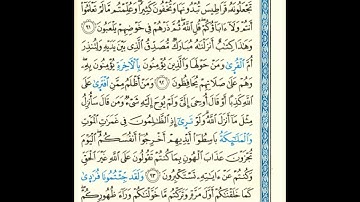 تَجْعَلُونَهُۥ قَرَاطِيسَ تُبْدُونَهَا وَتُخْفُونَ كَثِيرًا وَعُلِّمْتُم مَّا لَمْ تَعْلَمُوٓا۟
أَنتُمْ وَلَآ ءَابَآؤُكُمْ قُلِ ٱللَّهُ ثُمَّ ذَرْهُمْ فِى خَوْضِهِمْ يَلْعَبُونَ ٩١
وَهَٰذَا كِتَٰبٌ أَنزَلْنَٰهُ مُبَارَكٌ مُّصَدِّقُ ٱلَّذِى بَيْنَ يَدَيْهِ وَلِتُنذِرَ
أُمَّ ٱلْقُرَىٰ وَمَنْ حَوْلَهَا وَٱلَّذِينَ يُؤْمِنُونَ بِٱلْءَاخِرَةِ يُؤْمِنُونَ بِهِۦ
وَهُمْ عَلَىٰ صَلَاتِهِمْ يُحَافِظُونَ ٩٢ وَمَنْ أَظْلَمُ مِمَّنِ ٱفْتَرَىٰ عَلَى
ٱللَّهِ كَذِبًا أَوْ قَالَ أُوحِىَ إِلَىَّ وَلَمْ يُوحَ إِلَيْهِ شَىْءٌ وَمَن قَالَ سَأُنزِلُ
مِثْلَ مَآ أَنزَلَ ٱللَّهُ وَلَوْ تَرَىٰٓ إِذِ ٱلظَّٰلِمُونَ فِى غَمَرَٰتِ ٱلْمَوْتِ
وَٱلْمَلَٰٓئِكَةُ بَاسِطُوٓا۟ أَيْدِيهِمْ أَخْرِجُوٓا۟ أَنفُسَكُمُ ٱلْيَوْمَ
تُجْزَوْنَ عَذَابَ ٱلْهُونِ بِمَا كُنتُمْ تَقُولُونَ عَلَى ٱللَّهِ غَيْرَ ٱلْحَقِّ
وَكُنتُمْ عَنْ ءَايَٰتِهِۦ تَسْتَكْبِرُونَ ٩٣ وَلَقَدْ جِئْتُمُونَا فُرَٰدَىٰ
كَمَا خَلَقْنَٰكُمْ أَوَّلَ مَرَّةٍ وَتَرَكْتُم مَّا خَوَّلْنَٰكُمْ وَرَآءَ ظُهُورِكُمْ